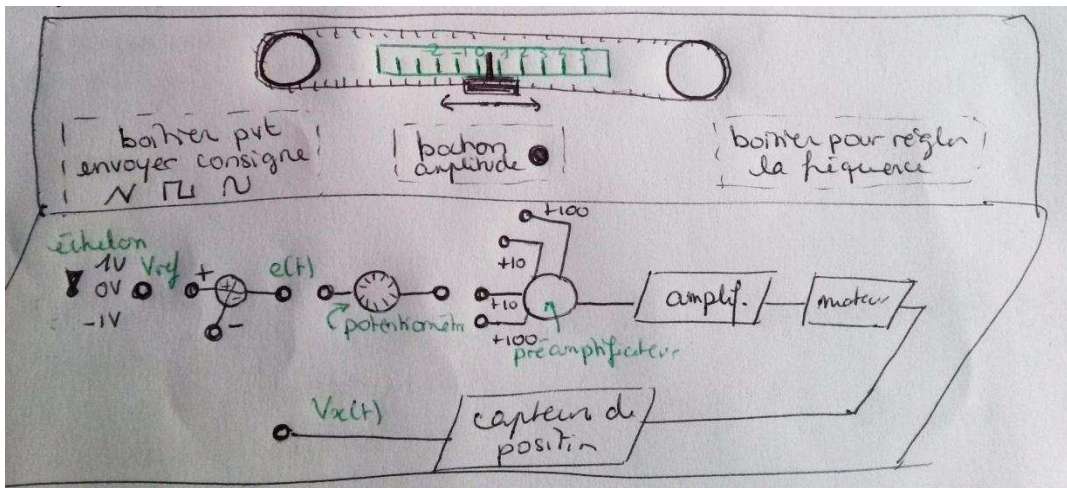 -2 -1 0 1 2 3 4 5
boîtier pvt
envoyer consigne
bouton
amplitude
boîtier pour régler
la fréquence
échelon
1V
0V
-1V
Vref
+
-
e(t)
potentiomètre
+100
+10
+10
+100
préamplificateur
amplif.
moteur
Vx(t)
capteur de
position